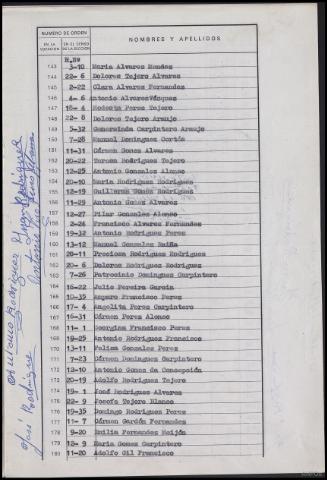 NUMERO DE ORDEN
NOMBRES Y APELLIDOS
EN LA VOTACION
EN EL CENSO DE LA SECCION
143 3-10 Maria Alvares Mendez
144 22- 6 Dolores Tejero Alvares
145 2-22 Clara Alvares Fernandes
146 4- 6 Antonio Alvares Vázques
147 18- 4 Modesta Peres Tejero
148 22- 8 Dolores Tejero Araujo
149 5-32 Gumersinda Carpintero Araujo
150 7-28 Manuel Domingues Cortés
151 11-31 Cármen Gomes Alvares
152 20-22 Teresa Rodrigues Tejero
153 12-25 Antonio Gonzales Alonso
154 20-10 Maria Rodrigues Rodrigues
155 12-19 Guillerma Gomes Rodrigues
156 11-29 Antonio Gomes Alvares
157 12-27 Pilar Gonzales Alonso
158 2-26 Francisco Alvares Fernandes
159 19-32 Antonio Rodrigues Peres
160 13-12 Manuel Gonzales
161 20-11 Preciosa Rodrigues Rodrigues
162 20- 6 Dolores Rodrigues Rodrigues
163 7-26 Patrocinio Domingues Carpintero
164 16-22 Julio Pereira Garcia
165 10-39 Amparo Francisco Peres
166 17- 4 Angelita Peres Carpintero
167 16-31 Cármen Peres Alonso
168 11- 1 Georgina Francisco Peres
169 19-25 Antonio Rodrigues Francisco
170 13-11 Felisa Gonzales Peres
171 7-23 Cármen Domingues Carpintero
172 12-10 Antonio Gomes de Concepción
173 20-19 Adolfo Rodrigues Tejero
174 19- 1 José Rodrigues Alvares
175 22- 9 Josefa Tejero Blanco
176 19-35 Domingo Rodrigues Peres
177 11- 7 Cármen Garzón Fernandes
178 9-20 Emilia Fernandes Meijón
179 12- 9 Maria Gomes Carpintero
180 11-20 Adolfo Gil Francisco
José Rodriguez